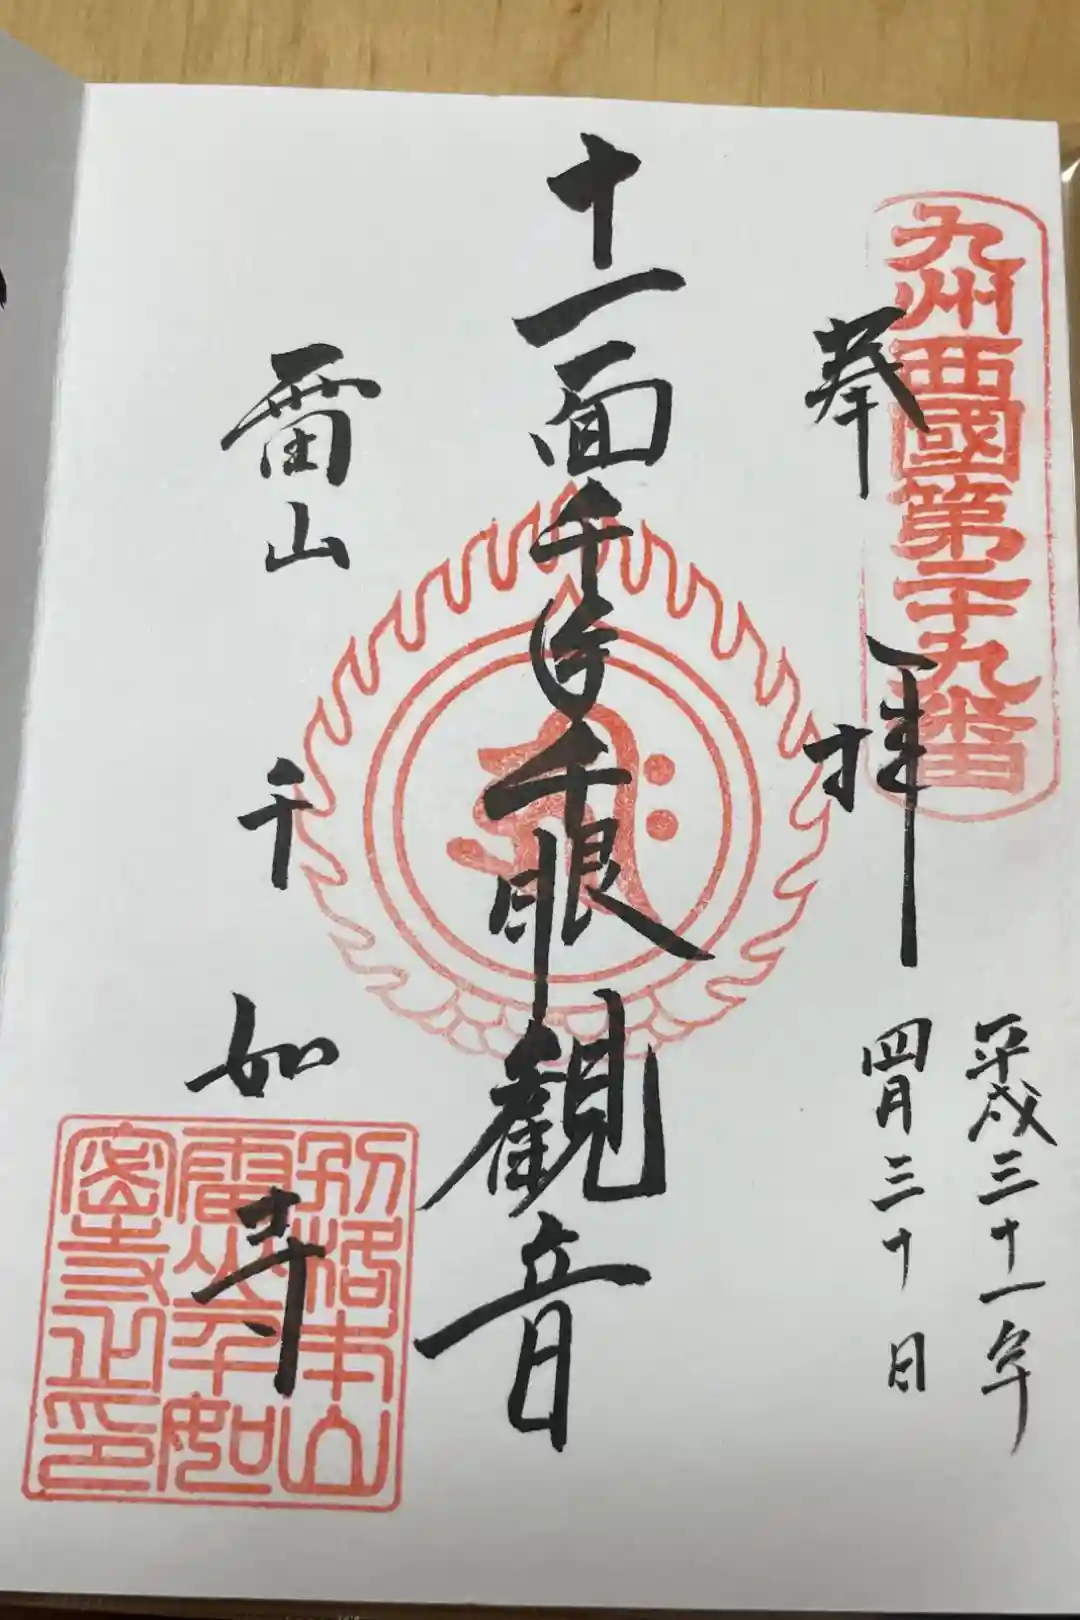 九州西國第二十九番
奉拝
平成三十一年
四月三十日
十一面千手千眼観音
雷山
千如寺
別格本山
雷山千如
密寺之印